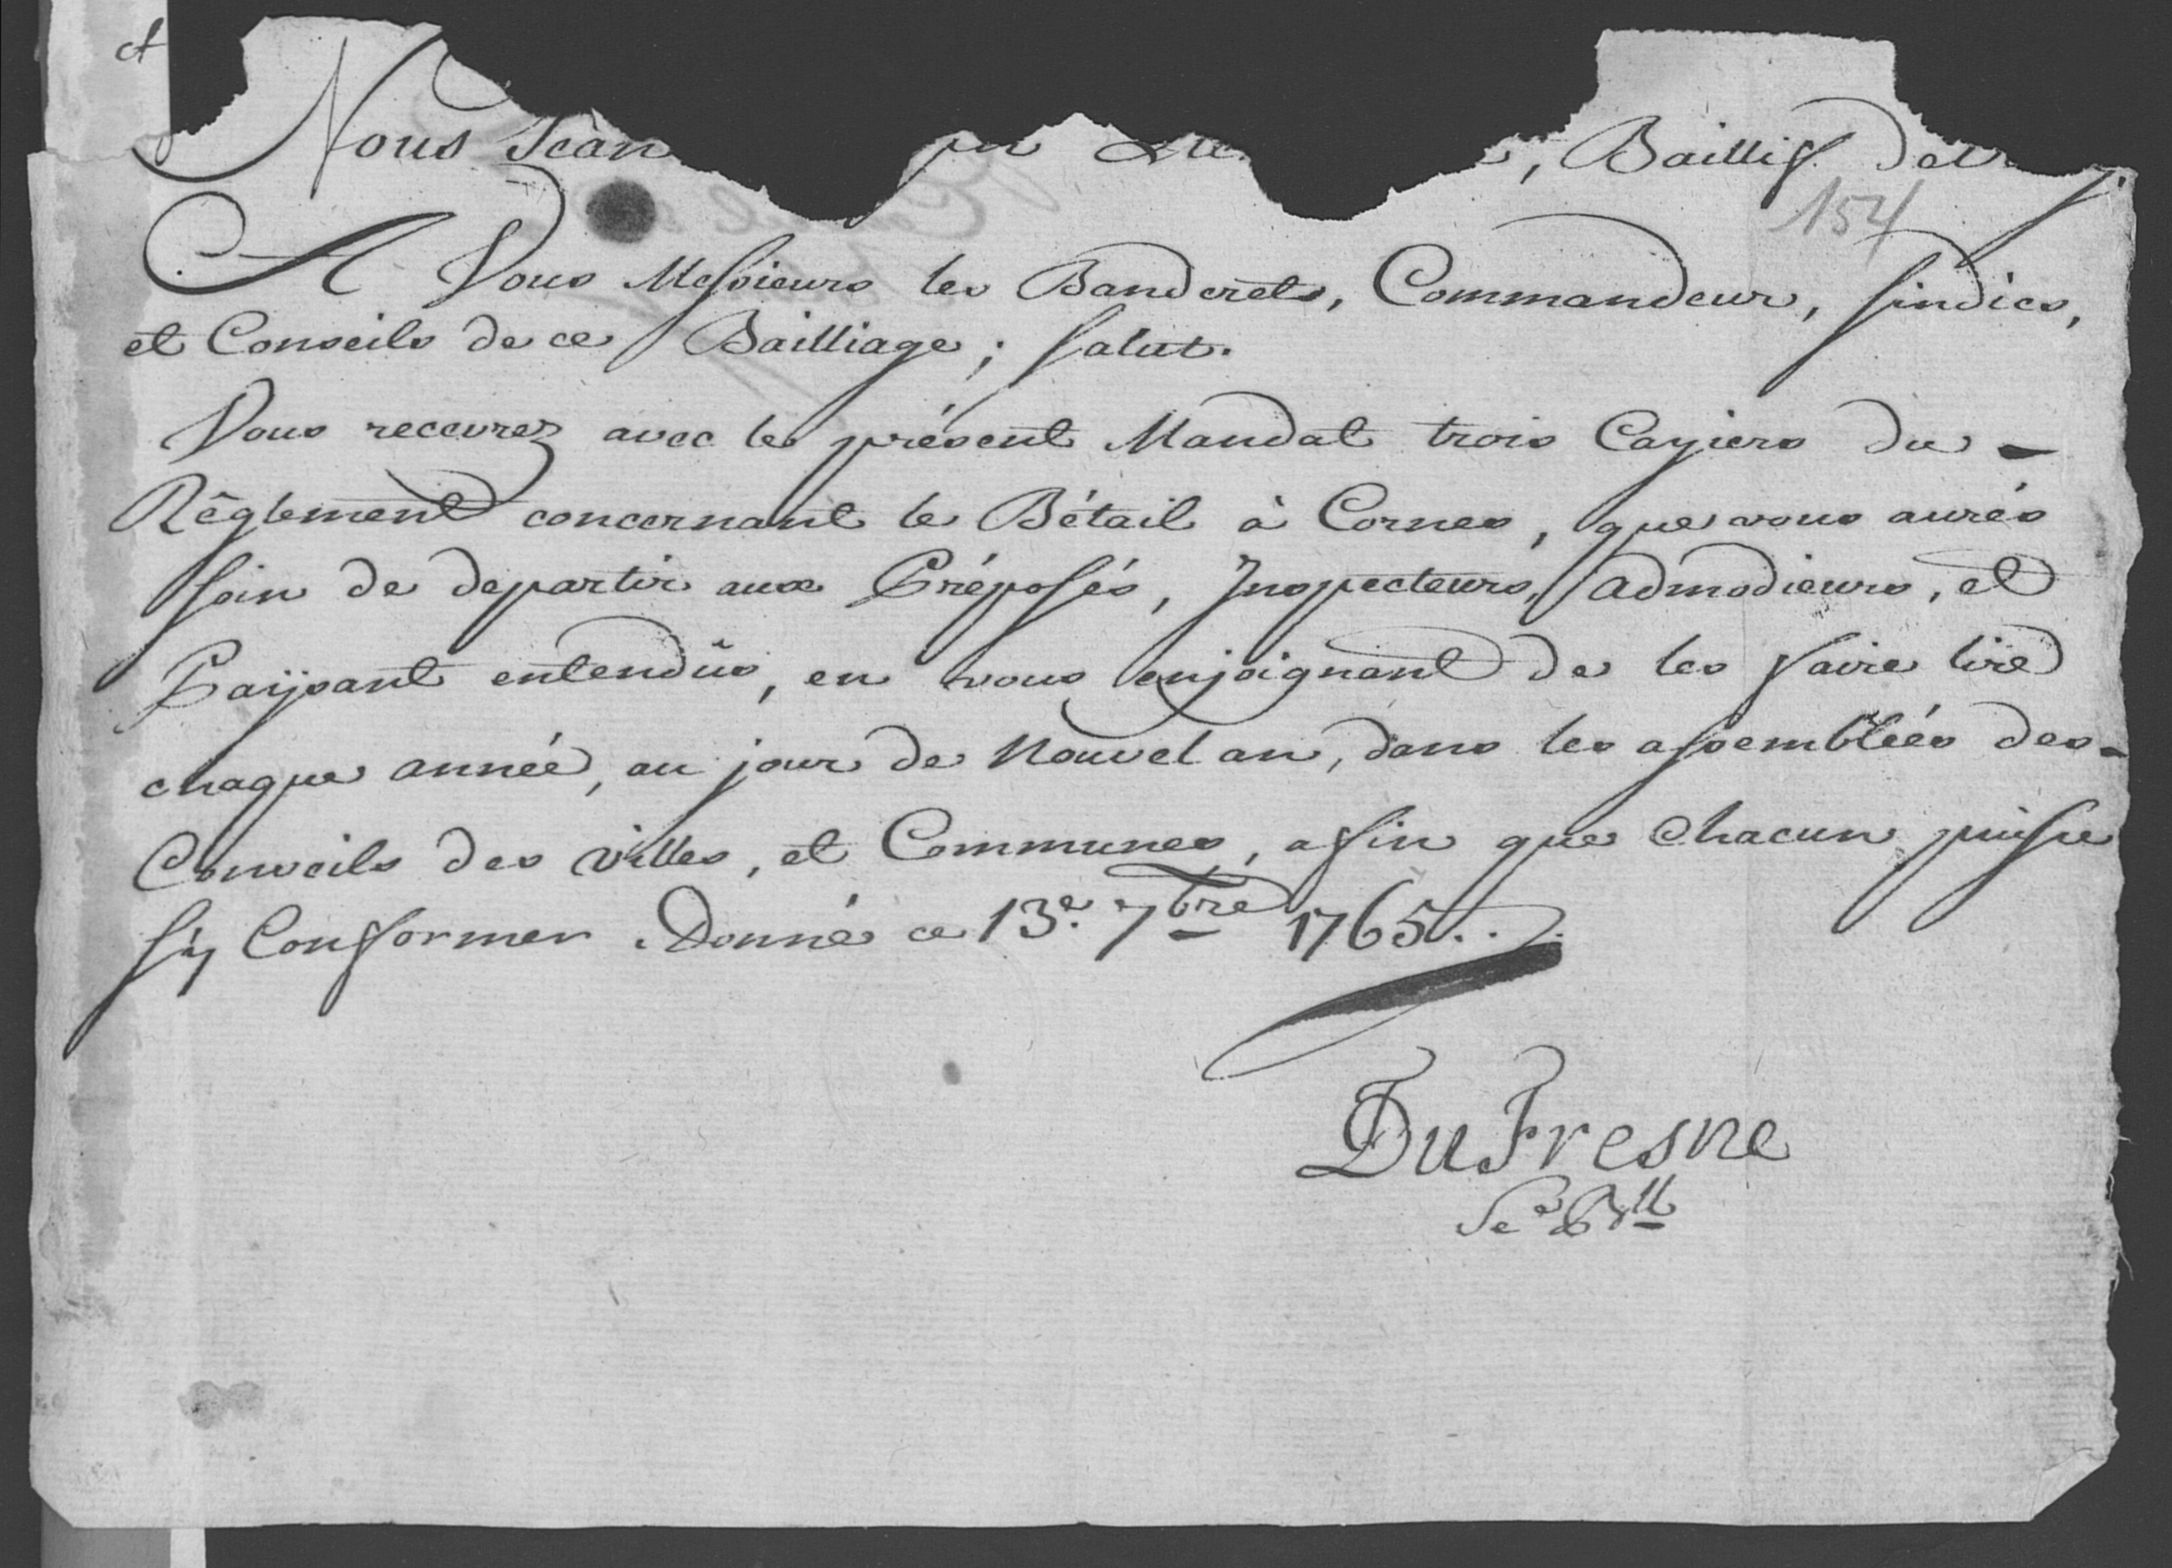 Nous Jean , Baillif de
154
A Vous Messieurs les Banderets, Commandeur, sindics,
et Conseils de ce Bailliage ; salut.
Vous recevrez avec le présent Mandat trois Cayiers du
Rêglement concernant le Bétail à Cornes, que vous aurés
soin de departir aux Préposés, Inspecteurs, admodieurs, et
Païjsant entendûs, en vous enjoignant de les faire lire
chaque année, au jour de Nouvel an, dans les assembléés des
Conseils des villes, et Communes, afin que Chacun puisse
s'y Conformer. Donné ce 13.e 7bre 1765..
DuFresne